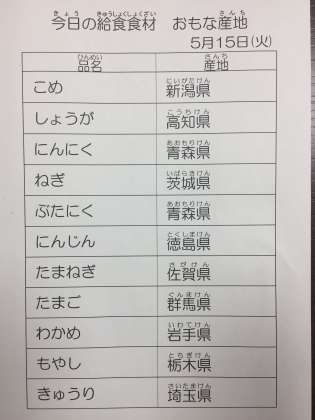 今日の給食食材 おもな産地
5月15日(火)
品名 産地
こめ 新潟県
しょうが 高知県
にんにく 青森県
ねぎ 茨城県
ぶたにく 青森県
にんじん 徳島県
たまねぎ 佐賀県
たまご 群馬県
わかめ 岩手県
もやし 栃木県
きゅうり 埼玉県